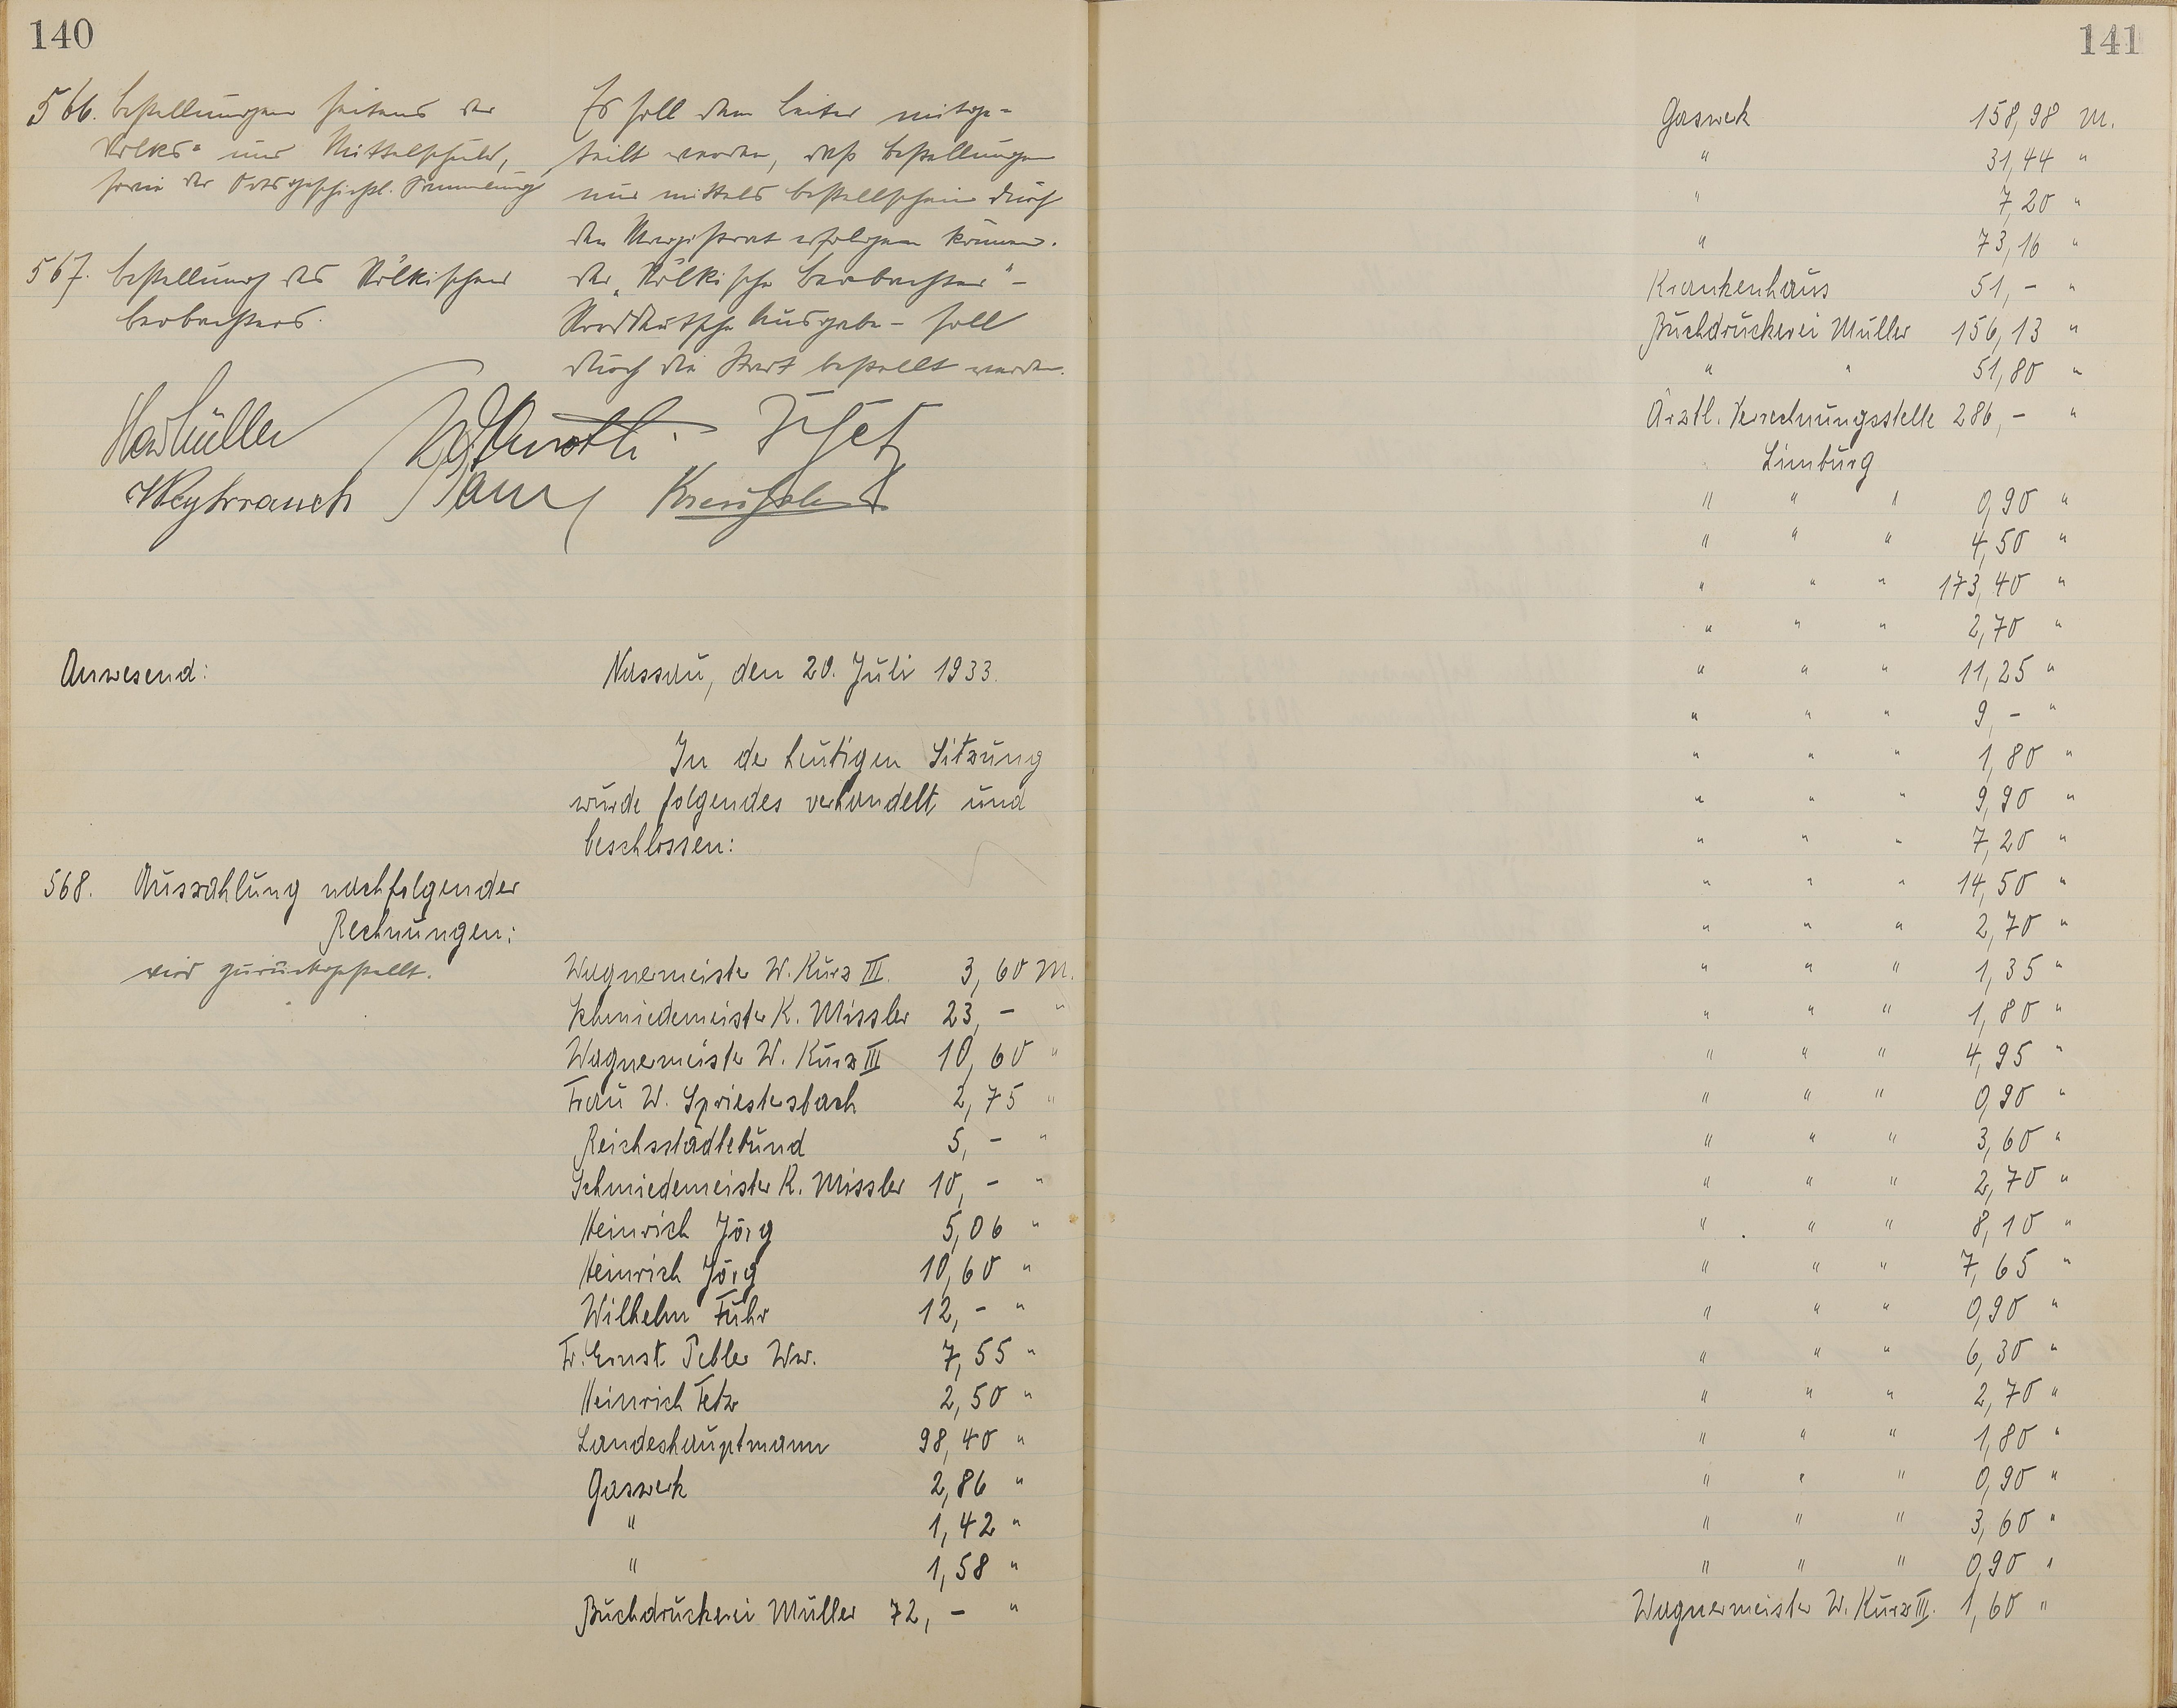 140
566. Bestellungen seitens der
Volks- und Mittelschule,
sowie der Ortsgeschichtl. Sammlung
Es soll dem Leiter mitge-
teilt werden, daß Bestellungen
nur mittels Bestellschein durch
den Magistrat erfolgen können.
567. Bestellung des Völkischen
Beobachters.
Der „Völkische Beobachter" -
Norddeutsche Ausgabe - soll
durch die Stadt bestellt werden.
Weyhrauch
Anwesend:
Nassau, den 20. Juli 1933.
In der heutigen Sitzung
wurde folgendes verhandelt und
beschlossen:
568. Auszahlung nachfolgender
Rechnungen:
wird zurückgestellt.
Wagnermeister W. Kurz III. 3,60 M.
Schmiedemeister K. Missler 23,- "
Wagnermeister W. Kurz III 10,60 "
Frau W. Spriestersbach 2,75 "
Reichsstädtebund 5,- "
Schmiedemeister K. Missler 10,- "
Heinrich Jörg 5,06 "
Heinrich Jörg 10,60 "
Wilhelm Fuhr 12,- "
Fr. Ernst Pebler Ww. 7,55 "
Heinrich Fetz 2,50 "
Landeshauptmann 98,40 "
Gaswerk 2,86 "
" 1,42 "
" 1,58 "
Buchdruckerei Müller 72,- "
141
Gaswerk 158,98 M.
" 31,44 "
" 7,20 "
" 73,16 "
Krankenhaus 51,- "
Buchdruckerei Müller 156,13 "
" " 51,80 "
Ärztl. Verrechnungsstelle 286,- "
Limburg
" " " 0,90 "
" " " 4,50 "
" " " 173,40 "
" " " 2,70 "
" " " 11,25 "
" " " 9,- "
" " " 1,80 "
" " " 9,90 "
" " " 7,20 "
" " " 14,50 "
" " " 2,70 "
" " " 1,35 "
" " " 1,80 "
" " " 4,95 "
" " " 0,90 "
" " " 3,60 "
" " " 2,70 "
" " " 8,10 "
" " " 7,65 "
" " " 0,90 "
" " " 6,30 "
" " " 2,70 "
" " " 1,80 "
" " " 0,90 "
" " " 3,60 "
" " " 0,90 "
Wagnermeister W. Kurz III. 1,60 "